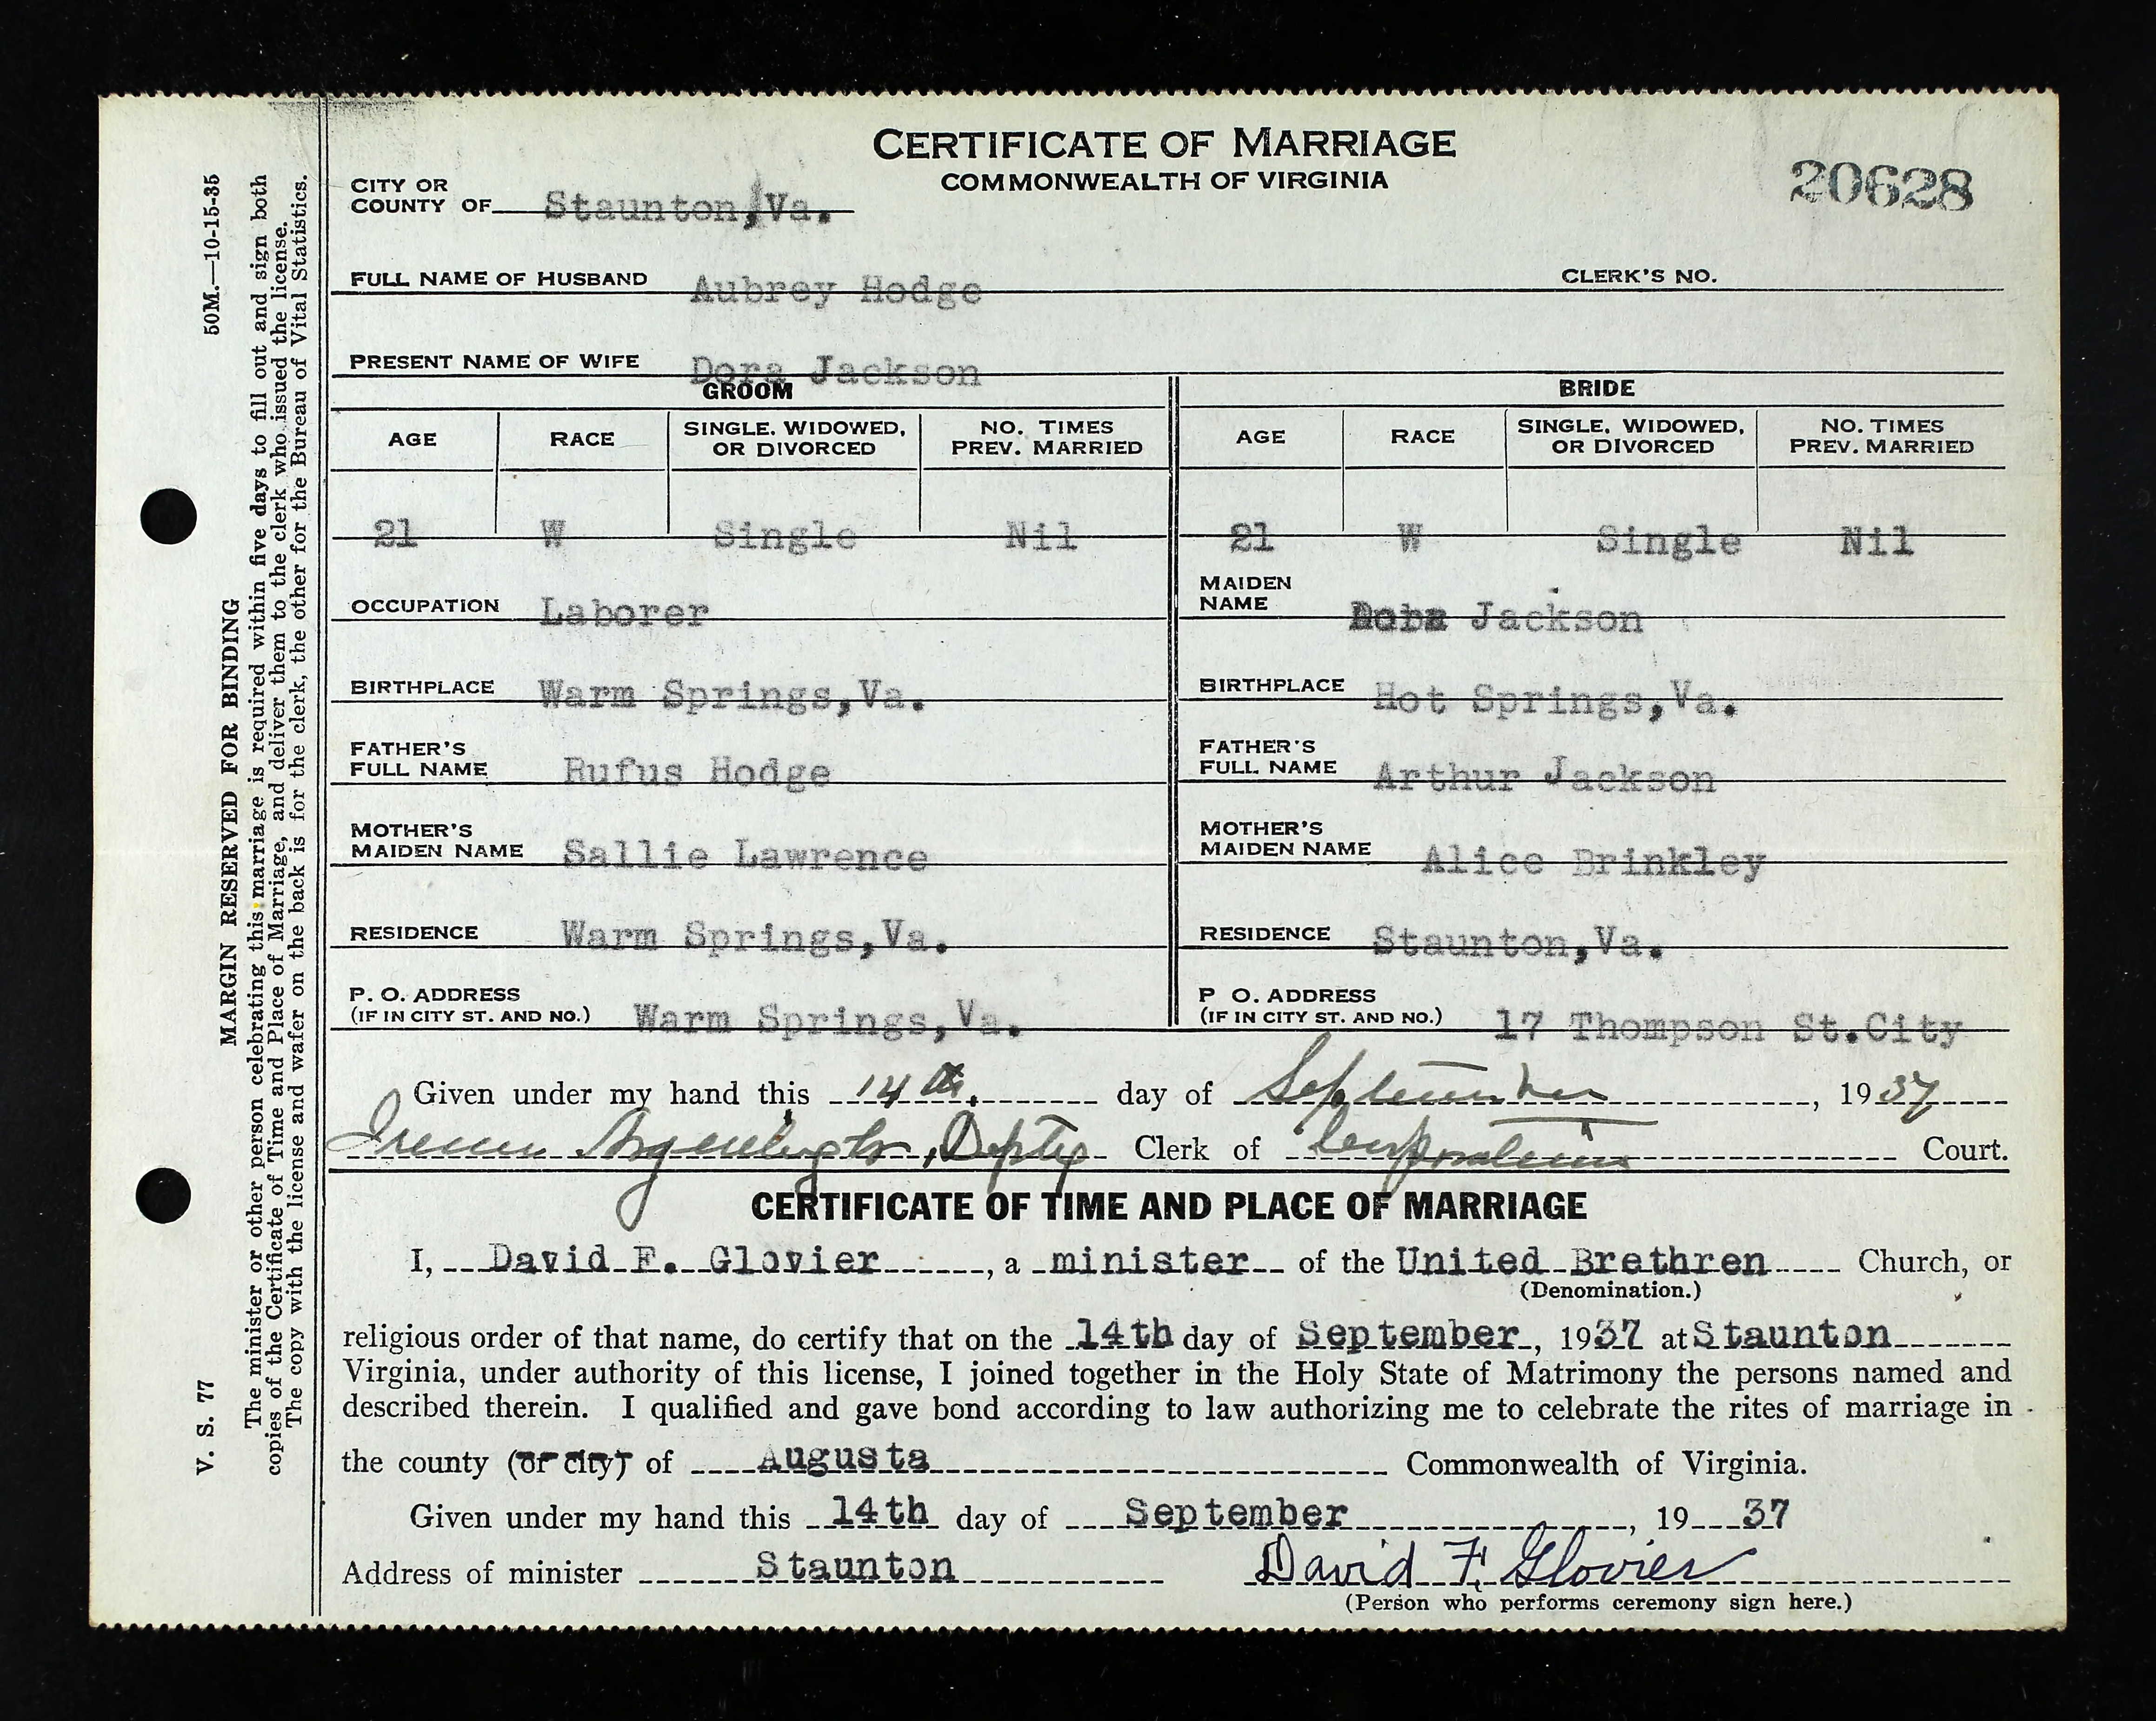 CERTIFICATE OF MARRIAGE
COMMONWEALTH OF VIRGINIA
20628
CITY OR COUNTY OF Staunton, Va.
FULL NAME OF HUSBAND Aubrey Hodge CLERK'S NO.
PRESENT NAME OF WIFE Dora Jackson
GROOM BRIDE
AGE RACE SINGLE, WIDOWED, OR DIVORCED NO. TIMES PREV. MARRIED AGE RACE SINGLE, WIDOWED, OR DIVORCED NO. TIMES PREV. MARRIED
21 W Single Nil 21 W Single Nil
OCCUPATION Laborer MAIDEN NAME Jackson
BIRTHPLACE Warm Springs,Va. BIRTHPLACE Hot Springs,Va.
FATHER'S FULL NAME Rufus Hodge FATHER'S FULL NAME Arthur Jackson
MOTHER'S MAIDEN NAME Sallie Lawrence MOTHER'S MAIDEN NAME Alice Brinkley
RESIDENCE Warm Springs,Va. RESIDENCE Staunton,Va.
P. O. ADDRESS (IF IN CITY ST. AND NO.) Warm Springs,Va. P O. ADDRESS (IF IN CITY ST. AND NO.) 17 Thompson St.City
Given under my hand this 14th. day of September, 1937
Depty Clerk of Corporation Court.
CERTIFICATE OF TIME AND PLACE OF MARRIAGE
I, David F. Glovier, a minister of the United Brethren Church, or
(Denomination.)
religious order of that name, do certify that on the 14th day of September, 1937 at Staunton
Virginia, under authority of this license, I joined together in the Holy State of Matrimony the persons named and
described therein. I qualified and gave bond according to law authorizing me to celebrate the rites of marriage in
the county (or city) of Augusta Commonwealth of Virginia.
Given under my hand this 14th day of September, 19 37
Address of minister Staunton David F. Glovier
(Person who performs ceremony sign here.)
V. S. 77 MARGIN RESERVED FOR BINDING 50M.—10-15-35
The minister or other person celebrating this marriage is required within five days to fill out and sign both
copies of the Certificate of Time and Place of Marriage, and deliver them to the clerk who issued the license.
The copy with the license and wafer on the back is for the clerk, the other for the Bureau of Vital Statistics.